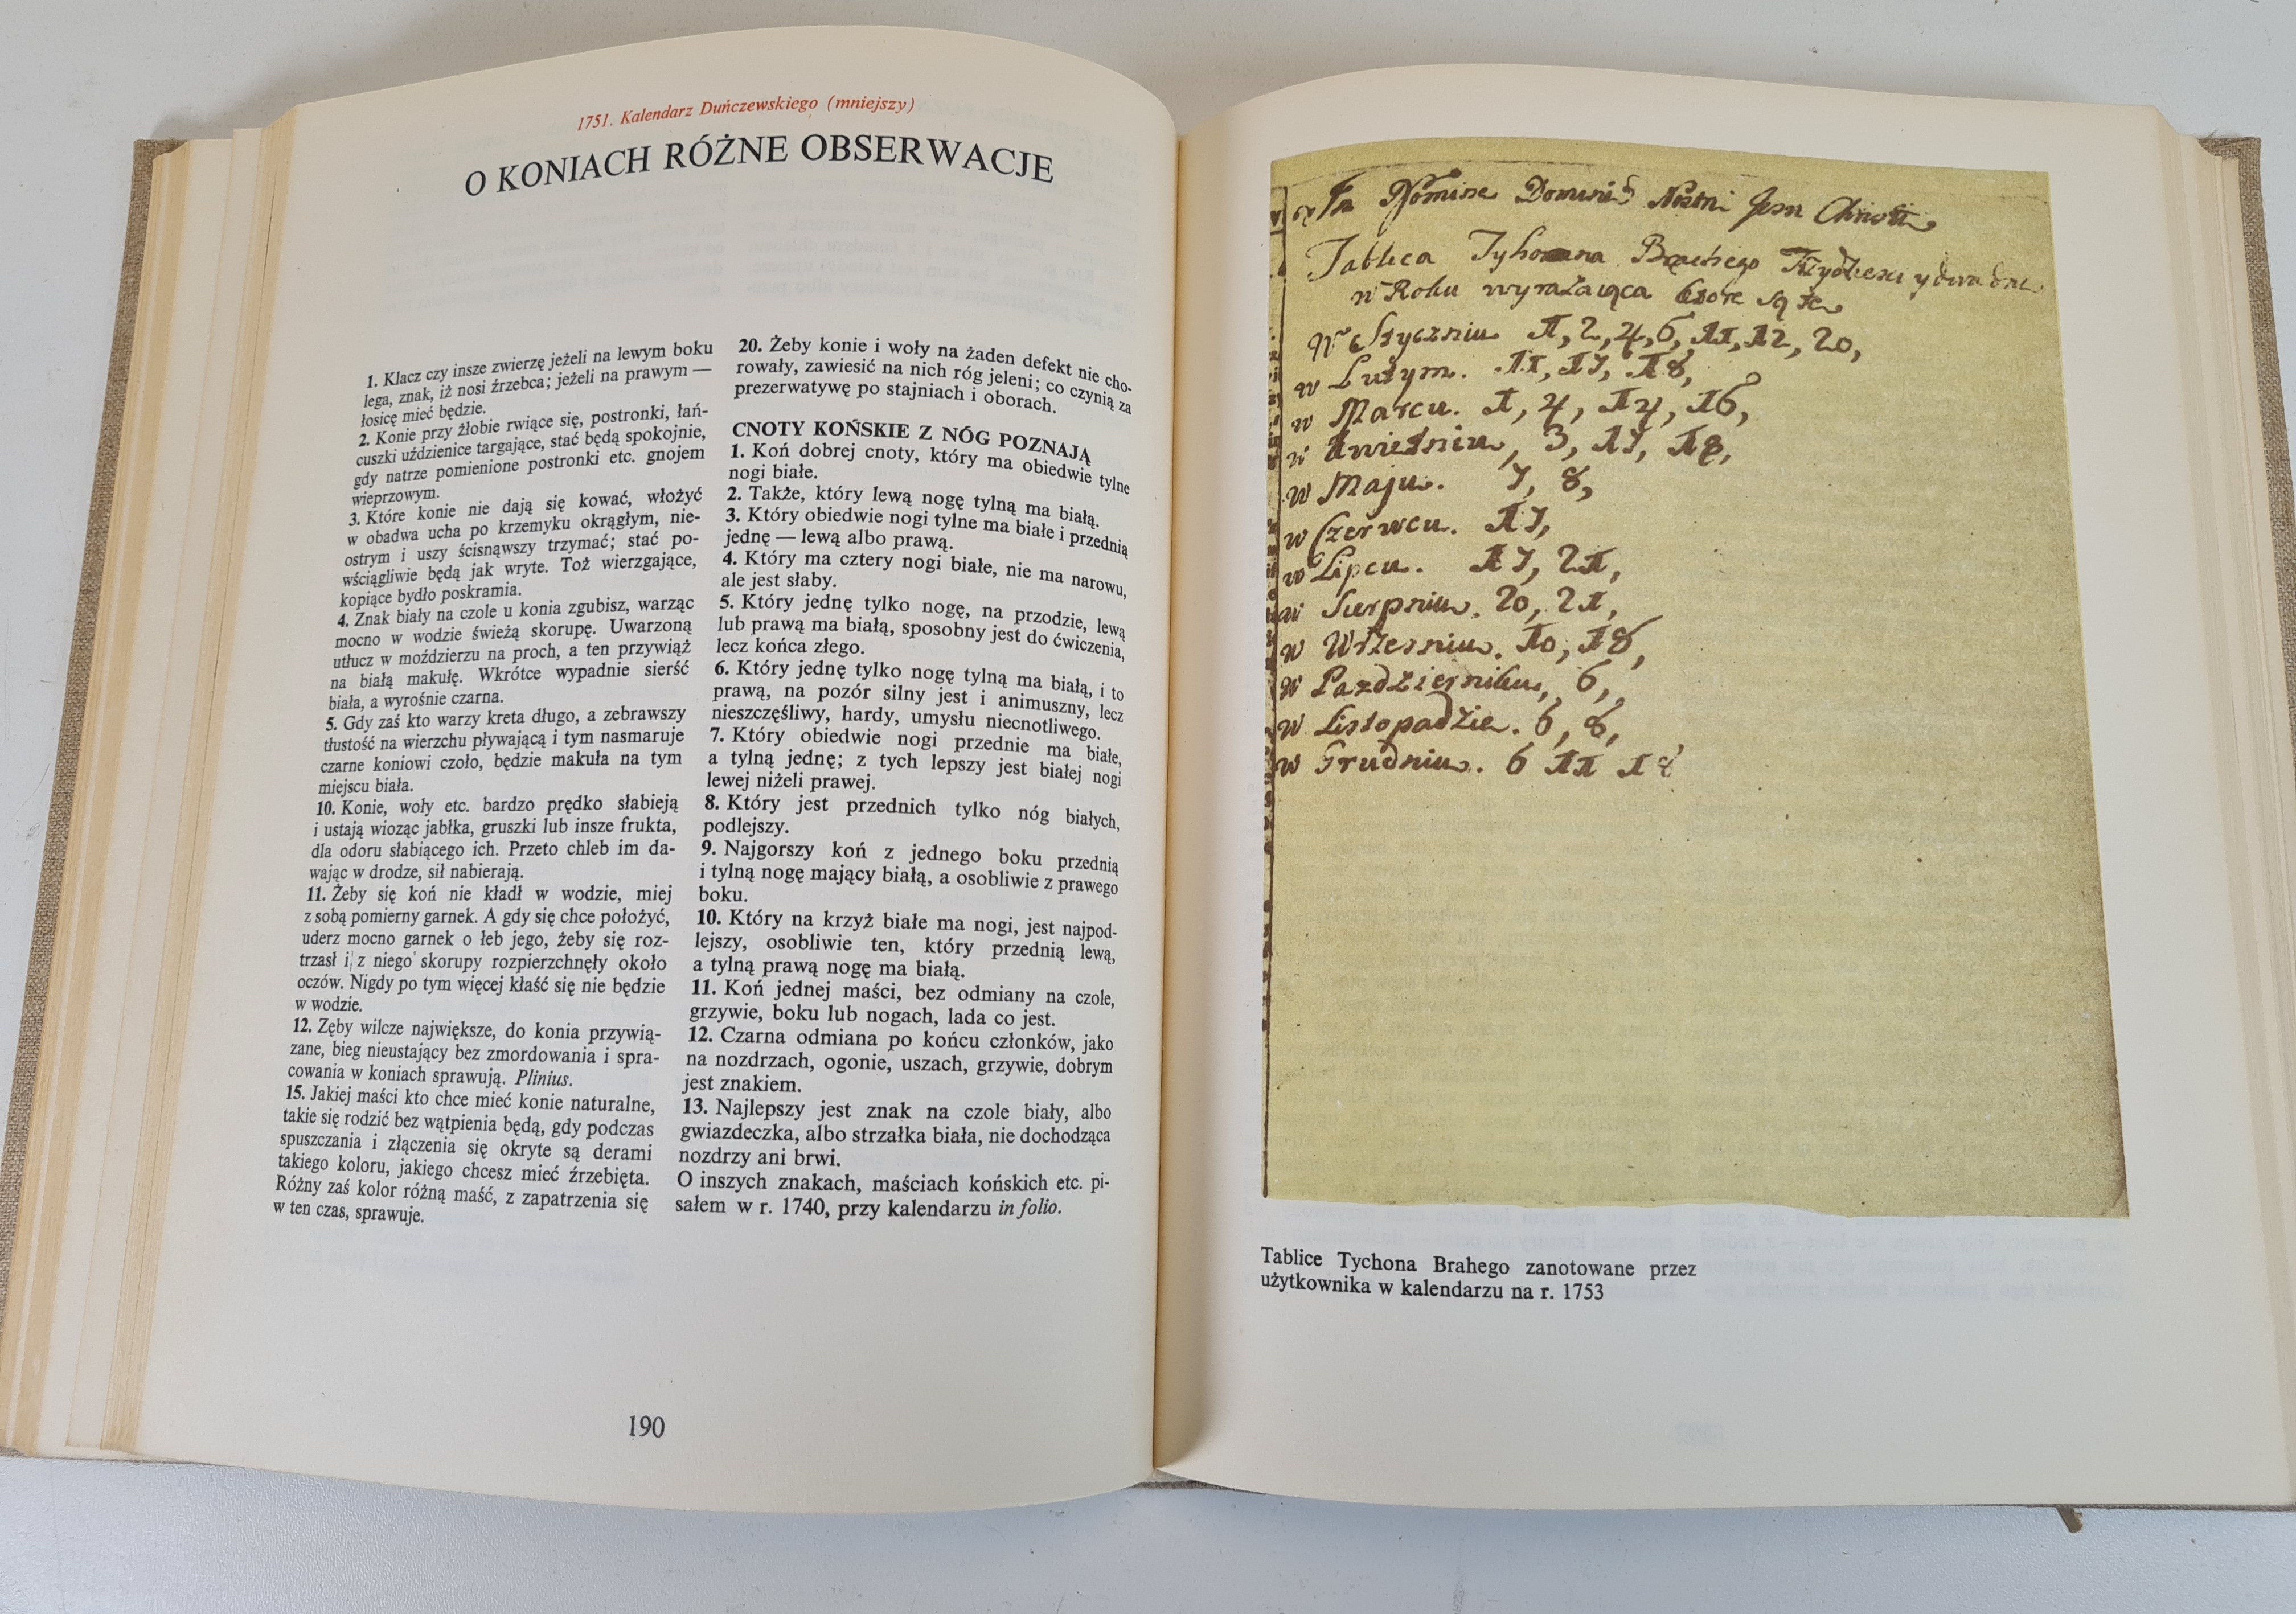 1751. Kalendarz Duńczewskiego (mniejszy)
O KONIACH RÓŻNE OBSERWACJE
1. Klacz czy insze zwierzę jeżeli na lewym boku
lega, znak, iż nosi źrzebca; jeżeli na prawym —
łosicę mieć będzie.
2. Konie przy żłobie rwiące się, postronki, łań-
cuszki uździenice targające, stać będą spokojnie,
gdy natrze pomienione postronki etc. gnojem
wieprzowym.
3. Które konie nie dają się kować, włożyć
w obadwa ucha po krzemyku okrągłym, nie-
ostrym i uszy ścisnąwszy trzymać; stać po-
wściągliwie będą jak wryte. Toż wierzgające,
kopiące bydło poskramia.
4. Znak biały na czole u konia zgubisz, warząc
mocno w wodzie świeżą skorupę. Uwarzoną
utłucz w moździerzu na proch, a ten przywiąż
na białą makułę. Wkrótce wypadnie sierść
biała, a wyrośnie czarna.
5. Gdy zaś kto warzy kreta długo, a zebrawszy
tłustość na wierzchu pływającą i tym nasmaruje
czarne koniowi czoło, będzie makuła na tym
miejscu biała.
10. Konie, woły etc. bardzo prędko słabieją
i ustają wioząc jabłka, gruszki lub insze frukta,
dla odoru słabiącego ich. Przeto chleb im da-
wając w drodze, sił nabierają.
11. Żeby się koń nie kładł w wodzie, miej
z sobą pomierny garnek. A gdy się chce położyć,
uderz mocno garnek o łeb jego, żeby się roz-
trzasł i z niego skorupy rozpierzchnęły około
oczów. Nigdy po tym więcej kłaść się nie będzie
w wodzie.
12. Zęby wilcze największe, do konia przywią-
zane, bieg nieustający bez zmordowania i spra-
cowania w koniach sprawują. Plinius.
15. Jakiej maści kto chce mieć konie naturalne,
takie się rodzić bez wątpienia będą, gdy podczas
spuszczania i złączenia się okryte są derami
takiego koloru, jakiego chcesz mieć źrzebięta.
Różny zaś kolor różną maść, z zapatrzenia się
w ten czas, sprawuje.
20. Żeby konie i woły na żaden defekt nie cho-
rowały, zawiesić na nich róg jeleni; co czynią za
prezerwatywę po stajniach i oborach.
CNOTY KOŃSKIE Z NÓG POZNAJĄ
1. Koń dobrej cnoty, który ma obiedwie tylne
nogi białe.
2. Także, który lewą nogę tylną ma białą.
3. Który obiedwie nogi tylne ma białe i przednią
jednę — lewą albo prawą.
4. Który ma cztery nogi białe, nie ma narowu,
ale jest słaby.
5. Który jednę tylko nogę, na przodzie, lewą
lub prawą ma białą, sposobny jest do ćwiczenia,
lecz końca złego.
6. Który jednę tylko nogę tylną ma białą, i to
prawą, na pozór silny jest i animuszny, lecz
nieszczęśliwy, hardy, umysłu niecnotliwego.
7. Który obiedwie nogi przednie ma białe,
a tylną jednę; z tych lepszy jest białej nogi
lewej niżeli prawej.
8. Który jest przednich tylko nóg białych,
podlejszy.
9. Najgorszy koń z jednego boku przednią
i tylną nogę mający białą, a osobliwie z prawego
boku.
10. Który na krzyż białe ma nogi, jest najpod-
lejszy, osobliwie ten, który przednią lewą,
a tylną prawą nogę ma białą.
11. Koń jednej maści, bez odmiany na czole,
grzywie, boku lub nogach, lada co jest.
12. Czarna odmiana po końcu członków, jako
na nozdrzach, ogonie, uszach, grzywie, dobrym
jest znakiem.
13. Najlepszy jest znak na czole biały, albo
gwiazdeczka, albo strzałka biała, nie dochodząca
nozdrzy ani brwi.
O inszych znakach, maściach końskich etc. pi-
sałem w r. 1740, przy kalendarzu in folio.
190
In Nomine Domini Nostri Jesu Christi
Tablica Tyhona Brachego Trzydzieści y dwa dni
w Roku wyrażaiąca ktore są te
W Styczniu 1, 2, 4, 6, 11, 12, 20,
w Lutym. 11, 17, 18,
w Marcu. 1, 4, 14, 16,
w Kwietniu, 3, 17, 18,
w Maju. 7, 8,
w Czerwcu. 17,
w Lipcu. 17, 21,
w Sierpniu. 20, 21,
w Wrzesniu. 10, 18,
w Pazdzierniku, 6,
w Listopadzie. 6, 8,
w Grudniu. 6 11 18
Tablice Tychona Brahego zanotowane przez
użytkownika w kalendarzu na r. 1753